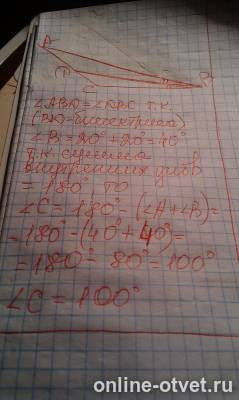 A
D
C
B
∠ABD = ∠DBC т.к.
(BD-биссектриса)
∠B = 20° + 20° = 40°
т.к. сумма
внутренних углов
= 180° то
∠C = 180° - (∠A + ∠B) =
= 180° - (40° + 40°) =
= 180° - 80° = 100°
∠C = 100°
online-otvet.ru